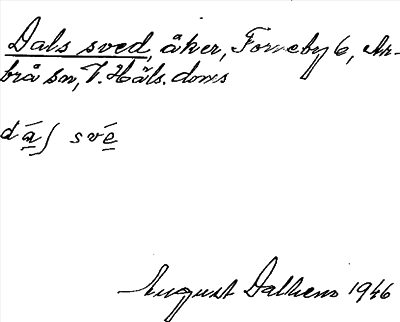 Dals sved, åker, Forneby 6, Ar-
brå sn, V. Häls. doms
dás své
August Dalhem 1946